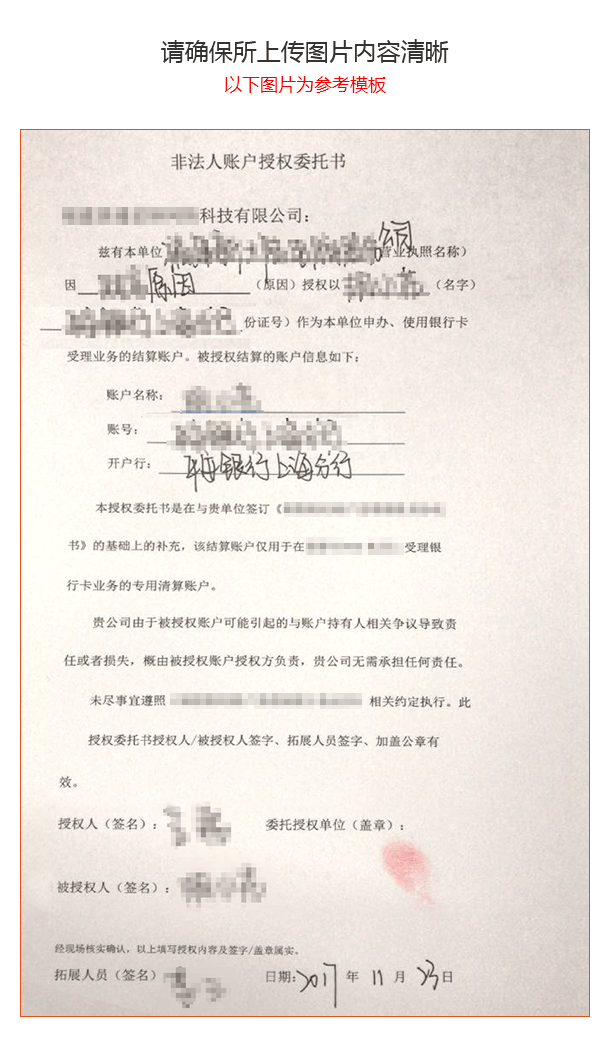 请确保所上传图片内容清晰
以下图片为参考模板
非法人账户授权委托书
科技有限公司：
兹有本单位 公司 营业执照名称）
因 原因 （原因）授权以 （名字）
份证号）作为本单位申办、使用银行卡
受理业务的结算账户。被授权结算的账户信息如下：
账户名称：
账号：
开户行： 银行上海分行
本授权委托书是在与贵单位签订《
书》的基础上的补充，该结算账户仅用于在 受理银
行卡业务的专用清算账户。
贵公司由于被授权账户可能引起的与账户持有人相关争议导致责
任或者损失，概由被授权账户授权方负责，贵公司无需承担任何责任。
未尽事宜遵照 相关约定执行。此
授权委托书授权人/被授权人签字、拓展人员签字、加盖公章有
效。
授权人（签名）： 委托授权单位（盖章）：
被授权人（签名）：
经现场核实确认，以上填写授权内容及签字/盖章属实。
拓展人员（签名） 日期：2017 年 11 月 23 日